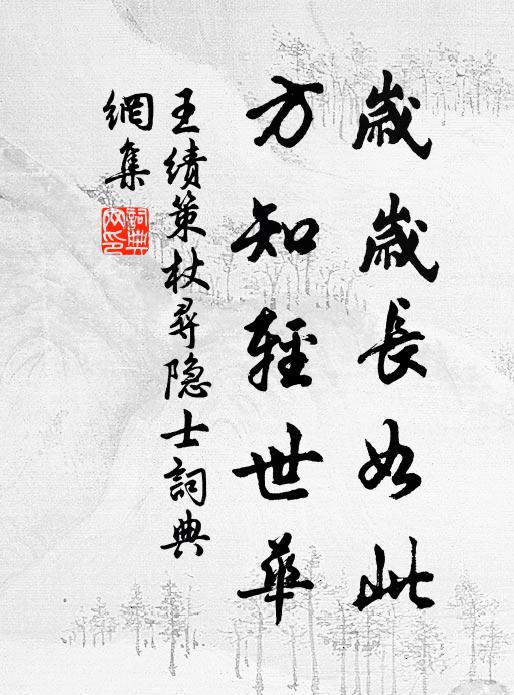 歲歲長如此
方知輕世華
王績策杖尋隐士詞典
網集
詞典
网印